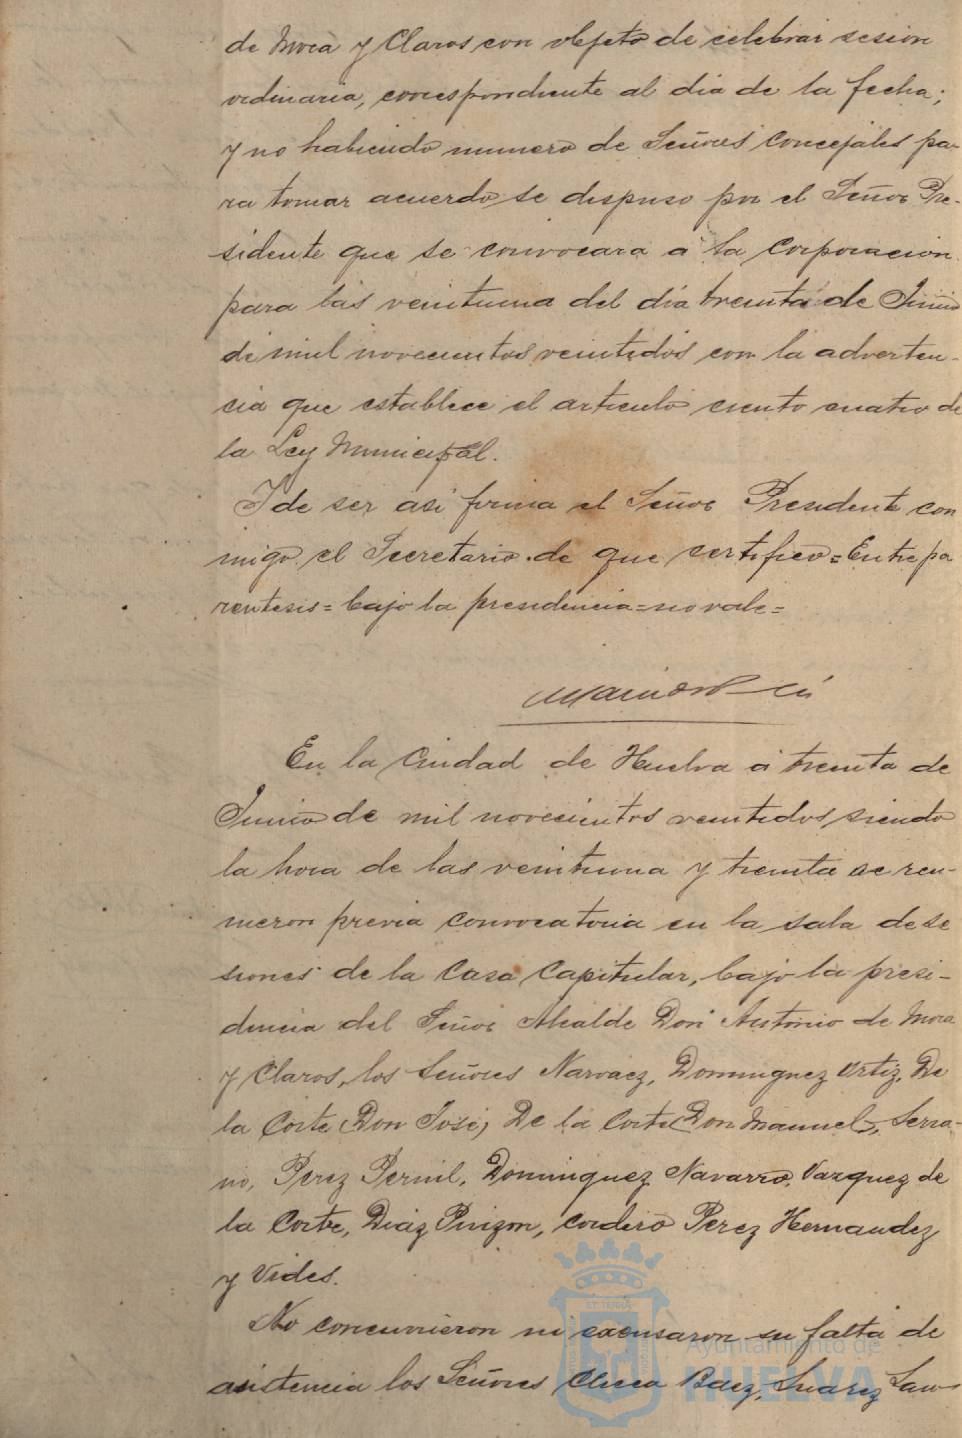 de Mora y Claros con objeto de celebrar sesion
ordinaria, correspondiente al dia de la fecha;
y no habiendo numero de Señores Concejales pa-
ra tomar acuerdo se dispuso por el Señor Pre-
sidente que se convocara a la Corporacion
para las veintiuna del dia treinta de Junio
de mil novecientos veintidos con la adverten-
cia que establece el articulo ciento cuatro de
la Ley Municipal.
I de ser asi firma el Señor Presidente con
migo el Secretario de que certifico=Entre pa
rentesis=bajo la presidencia=no vale=
En la Ciudad de Huelva a treinta de
Junio de mil novecientos veintidos, siendo
la hora de las veintiuna y treinta se reu-
nieron previa convocatoria en la sala de se
siones de la Casa Capitular, bajo la presi-
dencia del Señor Alcalde Don Antonio de Mora
y Claros, los Señores Narvaez, Dominguez Ortiz, De
la Corte (Don José), De la Corte (Don Manuel), Serra-
no, Perez Pernil, Dominguez Navarro, Vazquez de
la Corte, Diaz Pinzon, Cordero Perez Hernandez
y Vides.
No concurrieron ni excusaron su falta de
asistencia los Señores Checa Baez, Suarez
Ayuntamiento de
HUELVA